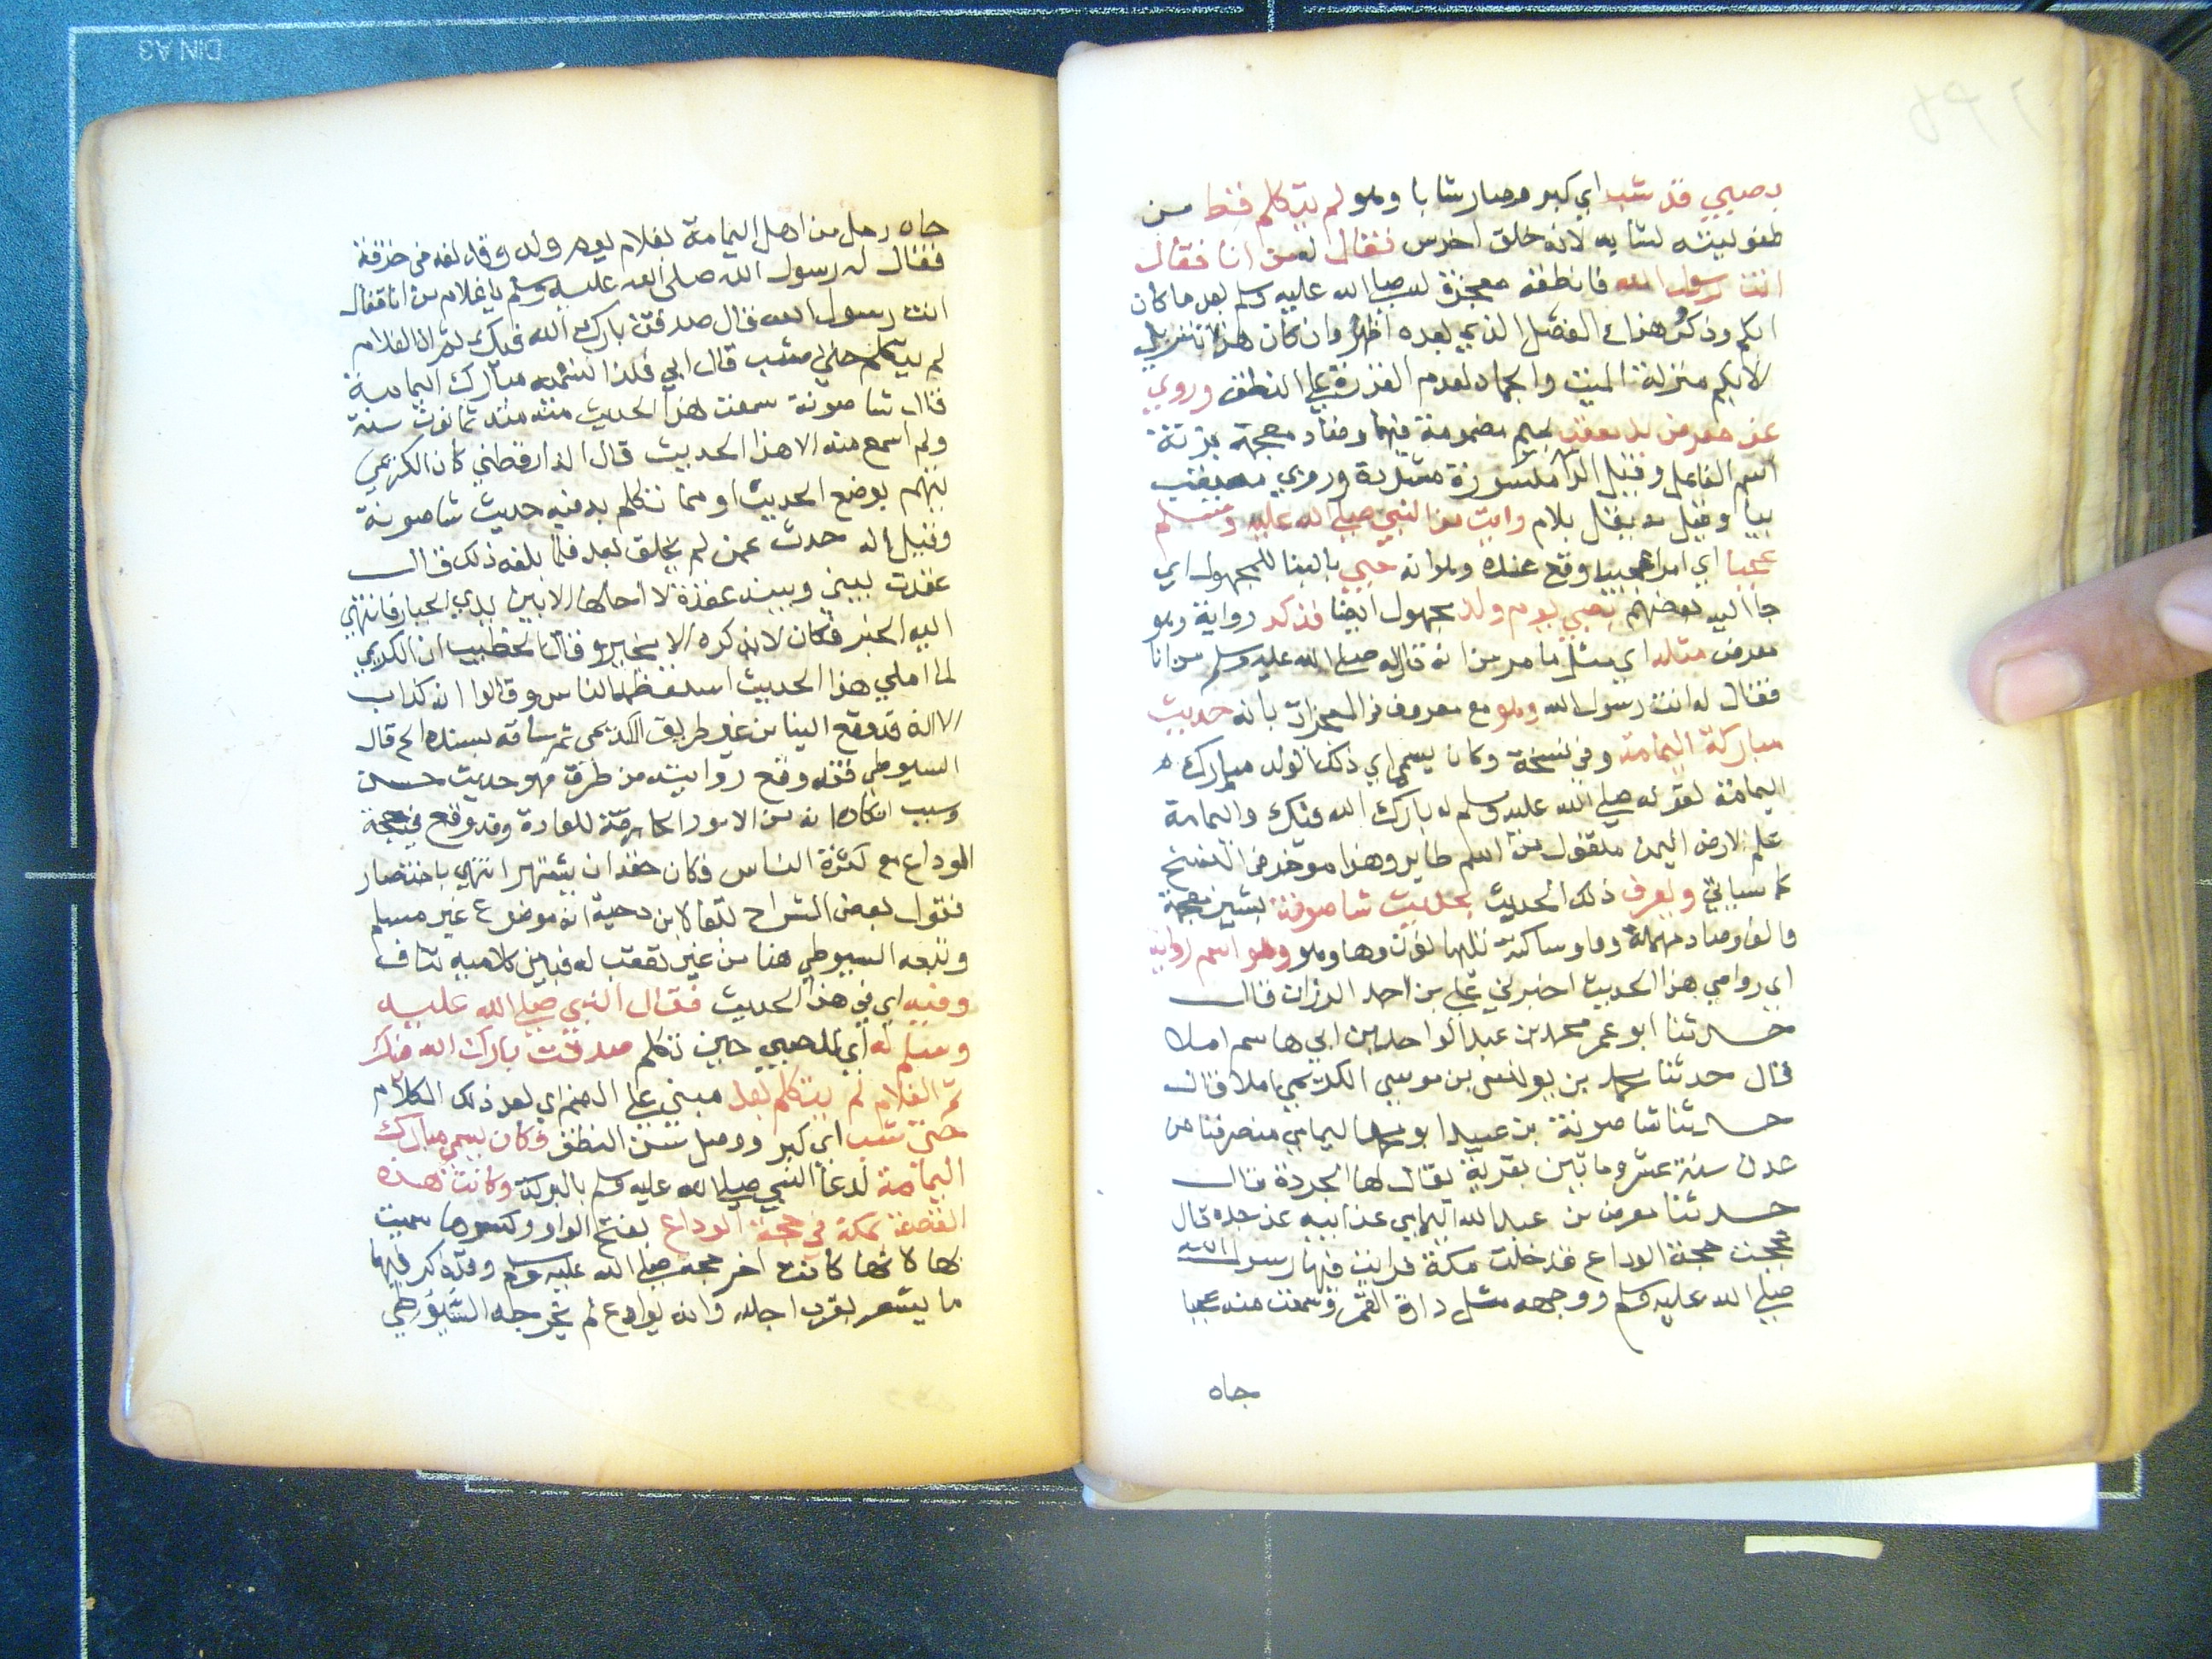 بصبي قد شب اي كبر وصار شابا وهو لم يتكلم قط من
طفوليته لشابه لانه خلق اخرس فقال له من انا فقال
انت رسول الله فانطقه معجزة له صلى الله عليه وسلم بعد ما كان
ابكم وذكر هذا في الفصل الذي بعده اظهر وان كان هذا تنزيل
لابكم منزلة الميت والجماد لعدم القدرة على النطق وروي
عن معرض بن معيقيب بميم مضمومة فيهما وضاد معجمة بزنة
اسم الفاعل وقيل الراء مكسورة مشددة وروي معيقيب
بيا وقيل معيقل بلام رايت من النبي صلى الله عليه وسلم
عجبا اي امرا عجيبا وقع عنده وهو انه جيي بالبنا للمجهول اي
جا اليه بعضهم بصبي يوم ولد مجهول ايضا فذكر رواية وهو
معرض مثله اي مثل ما مر من انه قال له صلى الله عليه وسلم من انا
فقال له انت رسول الله وهو مع معروف من المعجزات بانه حديث
مباركة اليمامة وفي نسخة وكان يسمى اي ذلك الولد مبارك
اليمامة لقوله صلى الله عليه وسلم له بارك الله فيك واليمامة
علم لارض اليمن منقول من اسم طاير وهذا موخر في النسخ
كما سياتي ويعرف ذلك الحديث بحديث شاصونة بشين معجمة
والف وصاد مهملة وواو ساكنة تليها نون وها وهو وهو اسم راويه
اي روا مي هذا الحديث اخبرني علي بن احمد الرزاز قال
حدثنا ابو عمر محمد بن عبد الواحد بن ابي هاشم املا
قال حدثنا محمد بن يونس بن موسي الكديمي املا قال
حدثنا شاصونة بن عبيد ابو محمد اليماني منصرفنا من
عدن سنة عشر وماتين بقرية يقال لها الجردة قال
حدثنا معرض بن عبد الله اليمامي عن ابيه عن جده قال
حججت حجة الوداع فدخلت مكة فرايت فيها رسول الله
صلى الله عليه وسلم ووجهه مثل دارة القمر وسمعت منه عجبا
جاه
جاه رجل من اهل اليمامة بغلام يوم ولد وقد لفه في خرقة
فقال له رسول الله صلى الله عليه وسلم يا غلام من انا فقال
انت رسول الله قال صدقت بارك الله فيك ثم ان الغلام
لم يتكلم حتى شب قال ابي فلذا نسميه مبارك اليمامة
قال شاصونة سمعت هذا الحديث منه منذ ثمانون سنة
ولم اسمع منه الا هذا الحديث قال الدارقطني كان الكديمي
يتهم بوضع الحديث ومما تكلم به فيه حديث شاصونة
وقيل انه حدث عمن لم يخلق بعد فلما بلغه ذلك قال
عقدت بيني وبينه عقدة لا احلها الا بين يدي الجبار فانتهي
اليه الخبر فكان لا يذكره الا بخير وقال الخطيب ان الكديمي
لما املي هذا الحديث استعظمه الناس وقالوا انه كذاب
الا انه قد وقع الينا من غير طريق الكديمي ثم ساقه بسنده الخ قال
السيوطي فقد وقع روايته من طرق فهو حديث حسن
وسبب انكاره انه من الامور الخارقة للعادة وقد وقع في حجة
الوداع مع كثرة الناس فكان حقه ان يشتهر انتهي باختصار
فقول بعض الشراح تلقا لابن دحية انه موضوع غير مسلم
وتبعه السيوطي هنا من غير تعقب له فبين كلاميه تناف
وفيه اي في هذا الحديث فقال النبي صلى الله عليه
وسلم له اي للصبي حين تكلم صدقت بارك الله فيك
ثم الغلام لم يتكلم بعد مبني على الضم اي بعد ذلك الكلام
حتى شب اي كبر ووصل سن النطق فكان يسمي مبارك
اليمامة لدعا النبي صلى الله عليه وسلم بالبركة وكانت هذه
القصة بمكة في حجة الوداع بفتح الواو وكسرها سميت
بها لانها كانت اخر حجه صلى الله عليه وسلم وقد ذكر فيها
ما يشعر بقرب اجله وانه يوادع لم يخرجه السيوطي